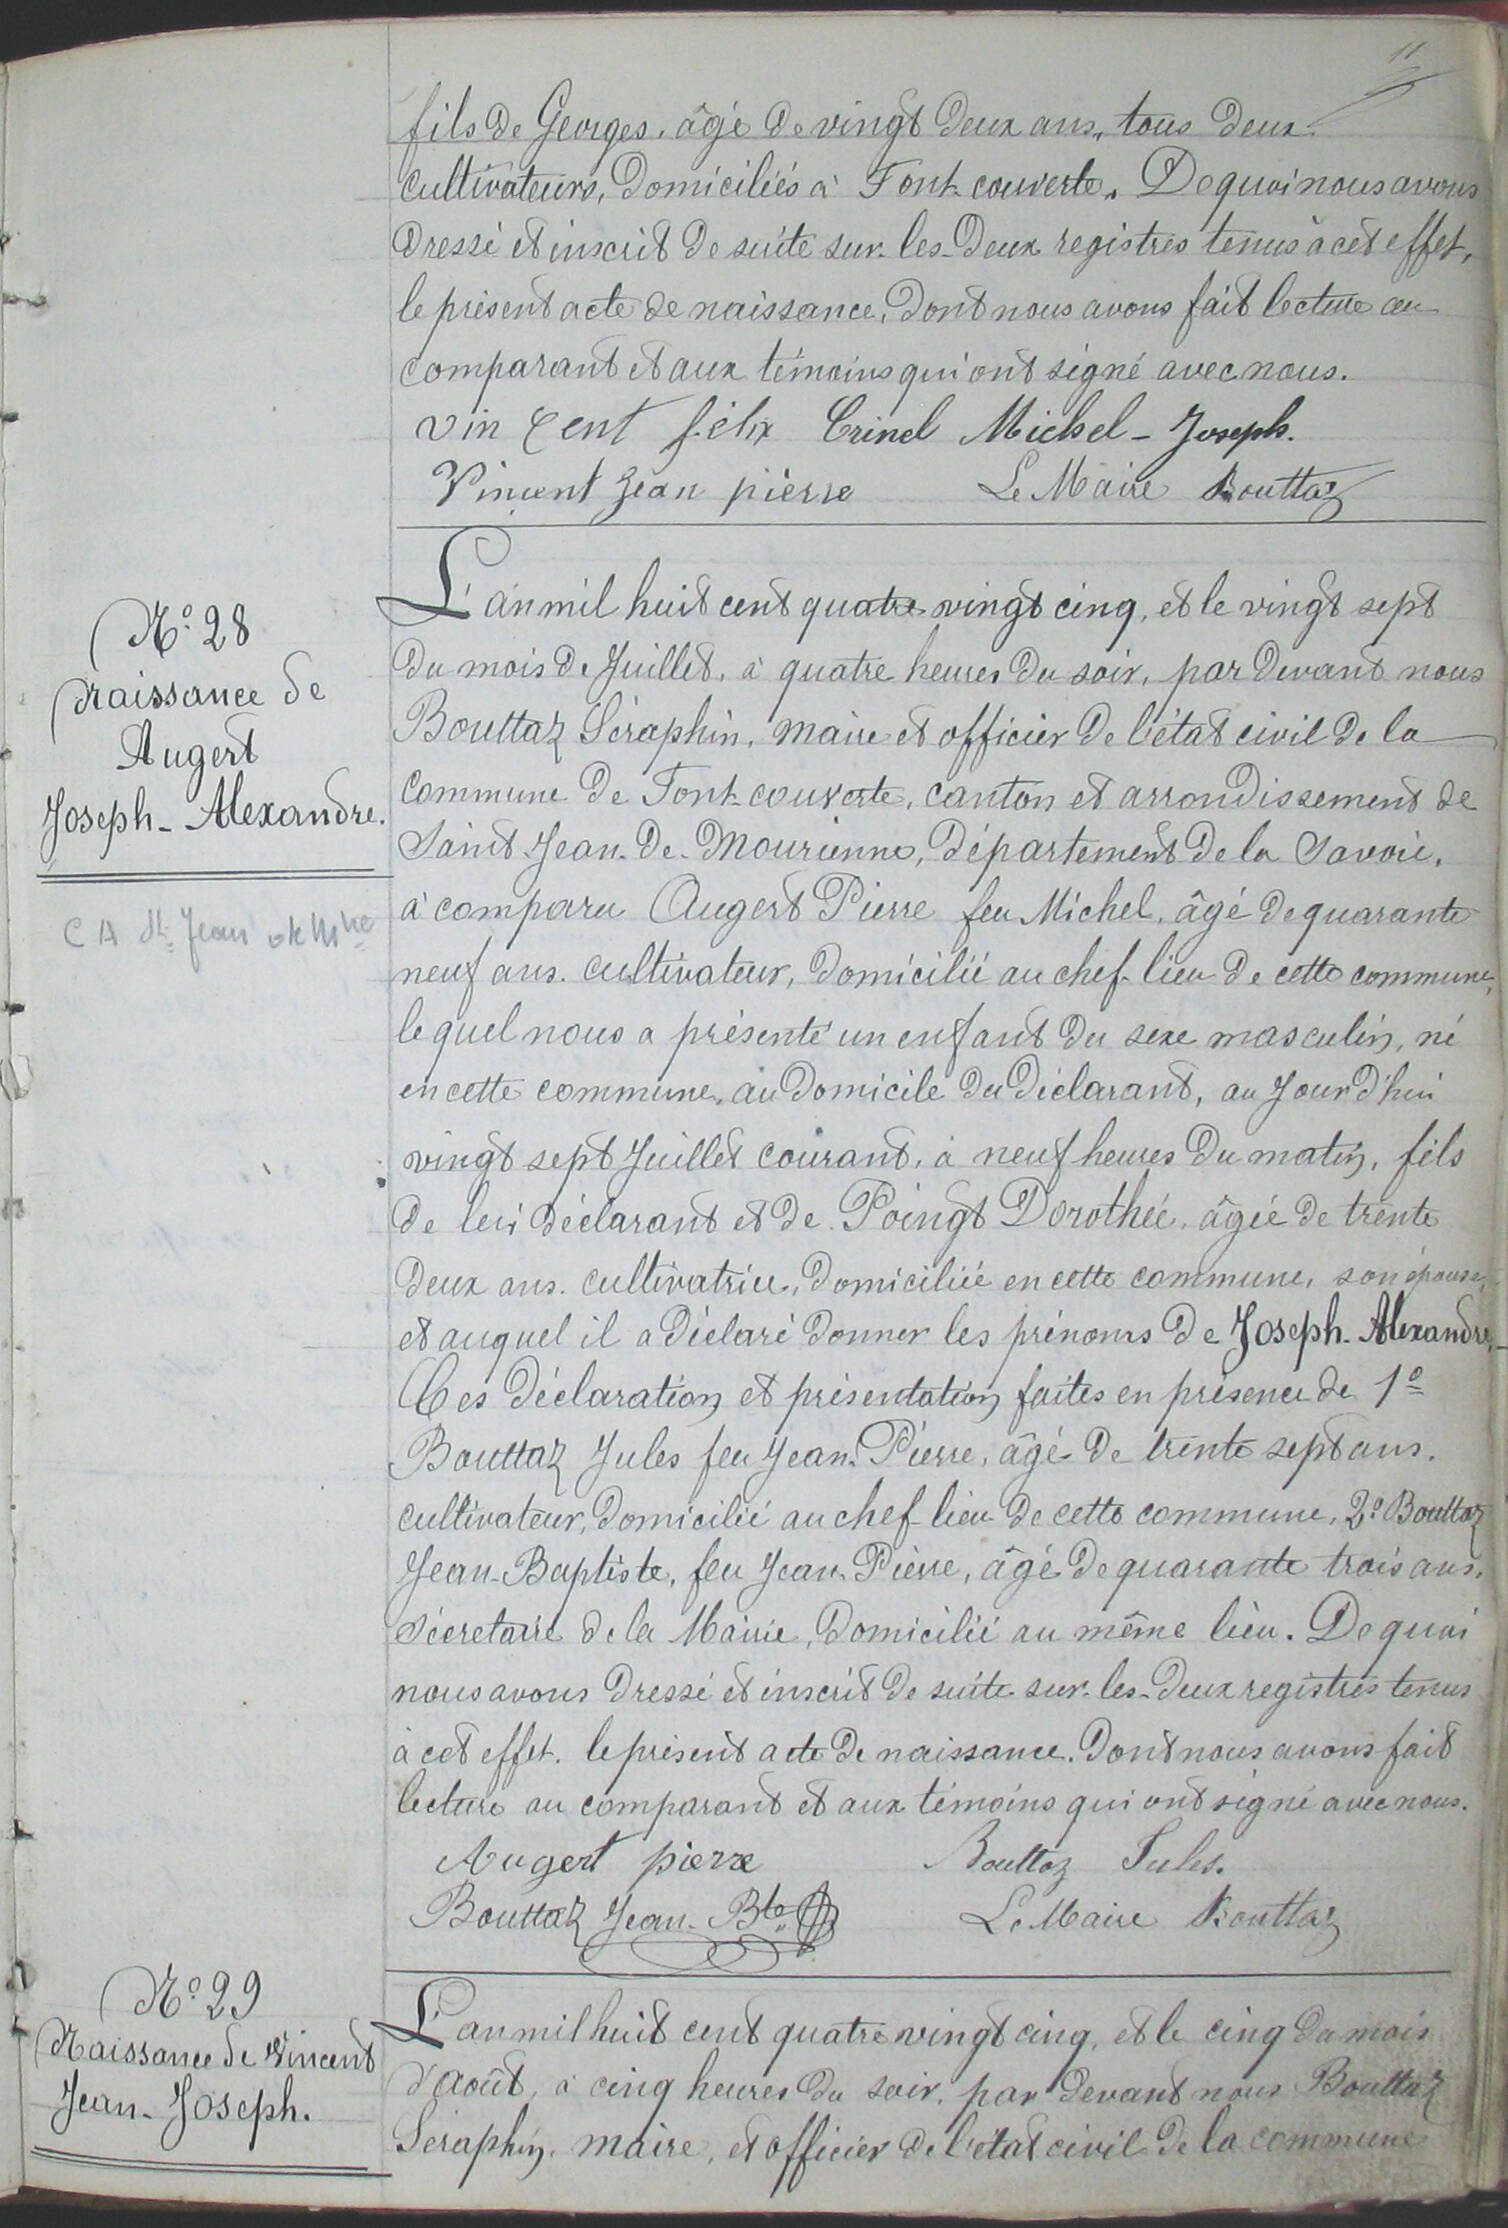 11
fils de Georges, âgé de vingt deux ans, tous deux
cultivateurs, domiciliés à Font-couverte. De quoi nous avons
dressé et inscrit de suite sur les deux registres tenus à cet effet,
le présent acte de naissance, dont nous avons fait lecture au
comparant et aux témoins qui ont signé avec nous.
vin cent félix Crinel Michel - Joseph.
Vincent Jean pierre Le Maire Bouttaz
N.° 28
naissance de
Augert
Joseph - Alexandre.
C A St Jean de Mne
L'an mil huit cent quatre vingt cinq, et le vingt sept
du mois de Juillet, à quatre heures du soir, par devant nous
Bouttaz Séraphin, maire et officier de l'état civil de la
commune de Font-couverte, canton et arrondissement de
Saint-Jean-de-Maurienne, département de la Savoie,
a comparu Augert Pierre feu Michel, âgé de quarante
neuf ans, cultivateur, domicilié au chef-lieu de cette commune,
lequel nous a présenté un enfant du sexe masculin, né
en cette commune, au domicile du déclarant, au jourd'hui
vingt sept Juillet courant, à neuf heures du matin, fils
de lui déclarant et de Poingt Dorothée, âgée de trente
deux ans, cultivatrice, domiciliée en cette commune, son épouse,
et auquel il a déclaré donner les prénoms de Joseph-Alexandre.
Ces déclaration et présentation faites en présence de 1°
Bouttaz Jules feu Jean-Pierre, âgé de trente sept ans,
cultivateur, domicilié au chef-lieu de cette commune, 2° Bouttaz
Jean-Baptiste, feu Jean-Pierre, âgé de quarante trois ans,
sécretaire de la Mairie, domicilié au même lieu. De quoi
nous avons dressé et inscrit de suite sur les deux registres tenus
à cet effet, le présent acte de naissance, dont nous avons fait
lecture au comparant et aux témoins qui ont signé avec nous.
Augert pierre Bouttaz Jules.
Bouttaz Jean-Bte Le Maire Bouttaz
N.° 29
Naissance de Vincent
Jean-Joseph.
L'an mil huit cent quatre vingt cinq, et le cinq du mois
d'août, à cinq heures du soir, par devant nous Bouttaz
Séraphin, maire, et officier de l'état civil de la commune